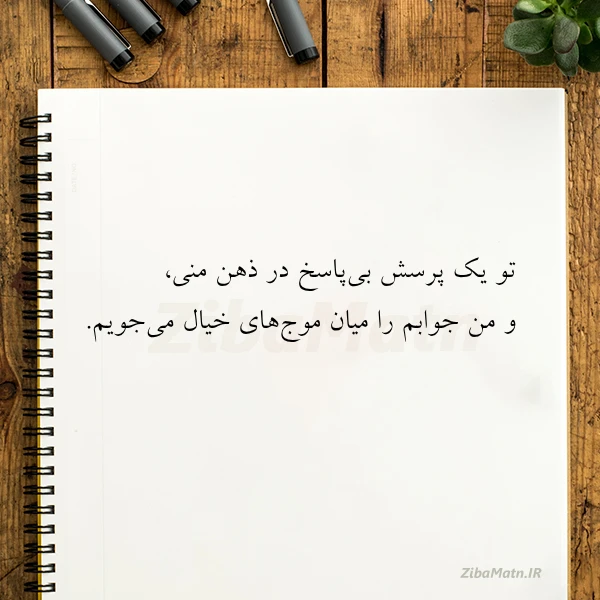 تو یک پرسش بی‌پاسخ در ذهن منی،
و من جوابم را میان موج‌های خیال می‌جویم.
ZibaMatn
ZibaMatn.IR